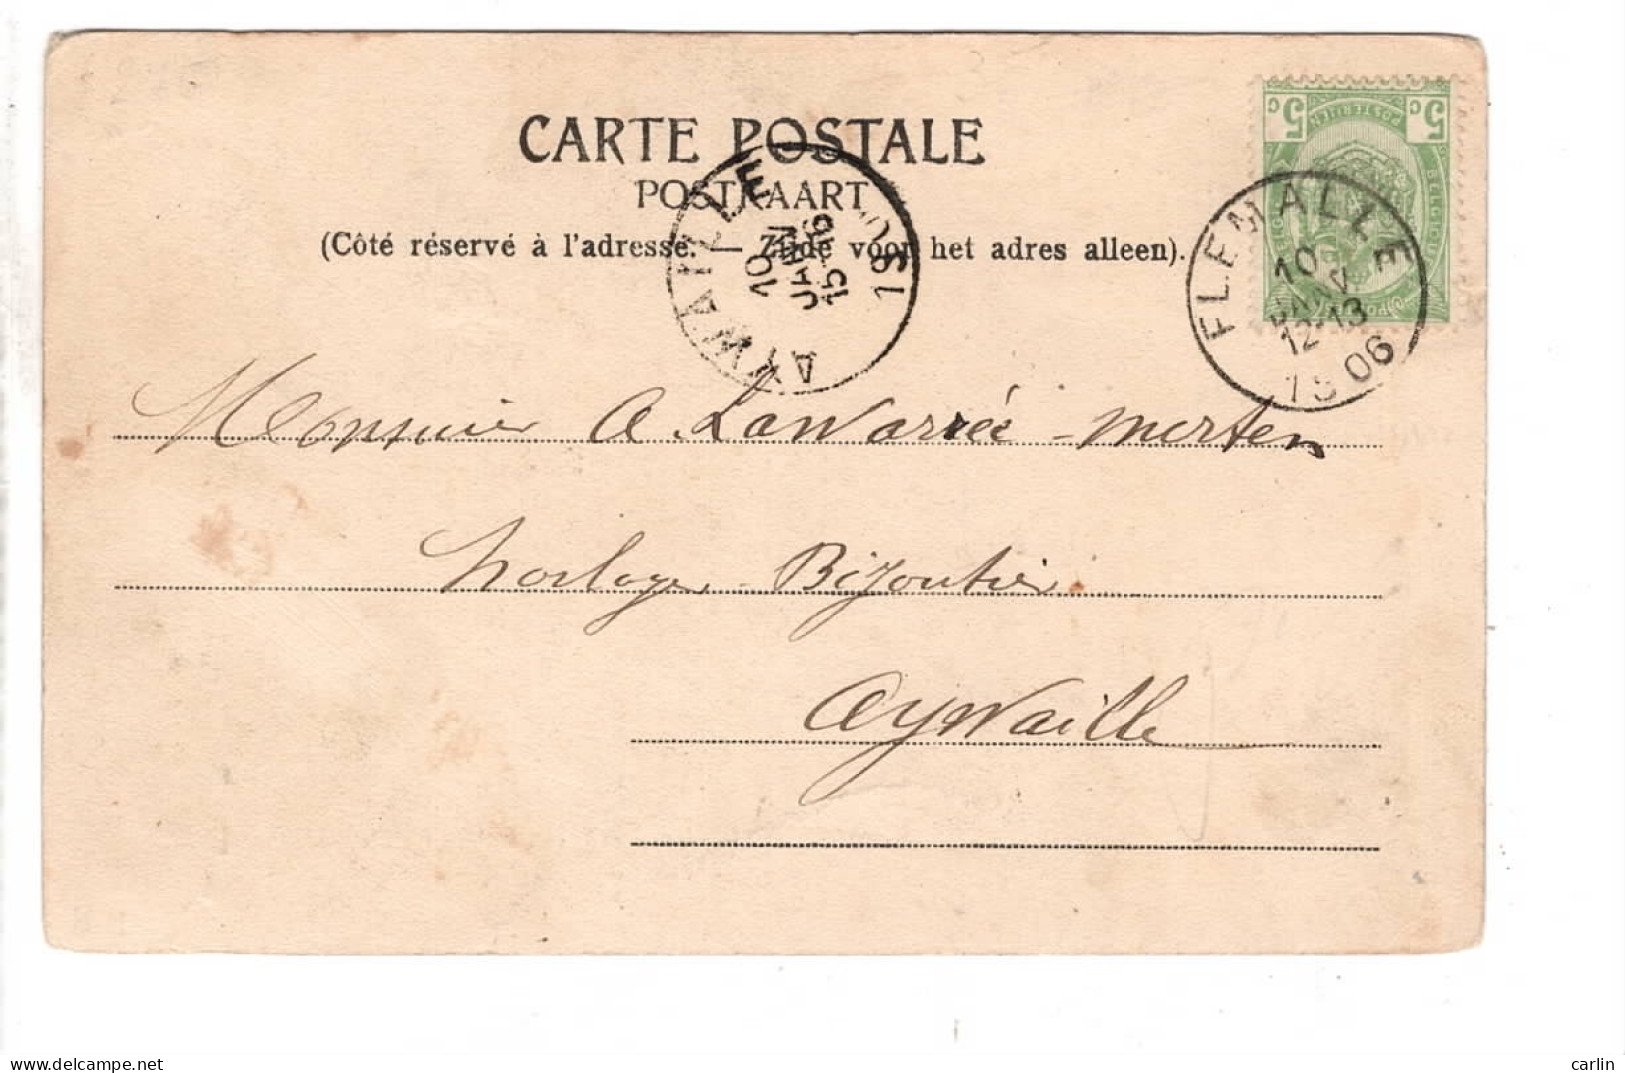 CARTE POSTALE
POSTKAART
(Côté réservé à l'adresse. — Zijde voor het adres alleen).
AYWAILLE
10
JANV
15-16
1906
5c 5c
POSTERIJEN
BELGIQUE
FLEMALLE
10
JANV.
12-13
1906
Monsieur A. Lawarrée-Merten
horloger-Bijoutier
Aywaille
delcampe.net
carlin